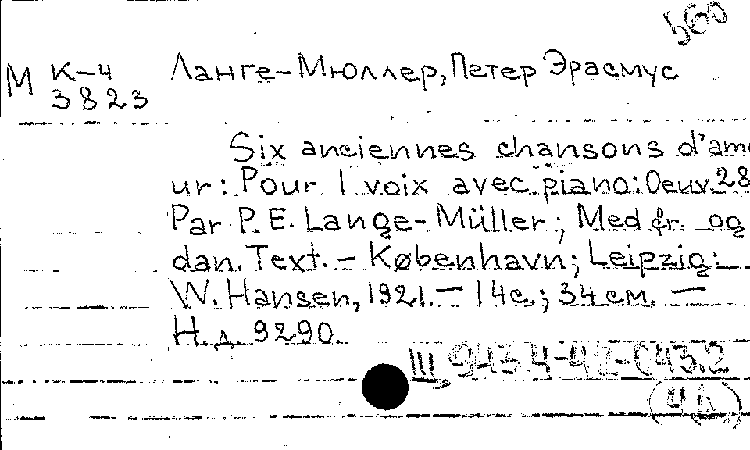 560
М К-4 Ланге-Мюллер, Петер Эрасмус
3823
Six anciennes chansons d'amo
ur: Pour 1 voix avec piano: Oeuv. 28
Par P. E. Lange-Müller; Med fr. og
dan. Text. – København; Leipzig:
W. Hansen, 1921. – 14с.; 34 см. –
Н. д. 9290.
III,